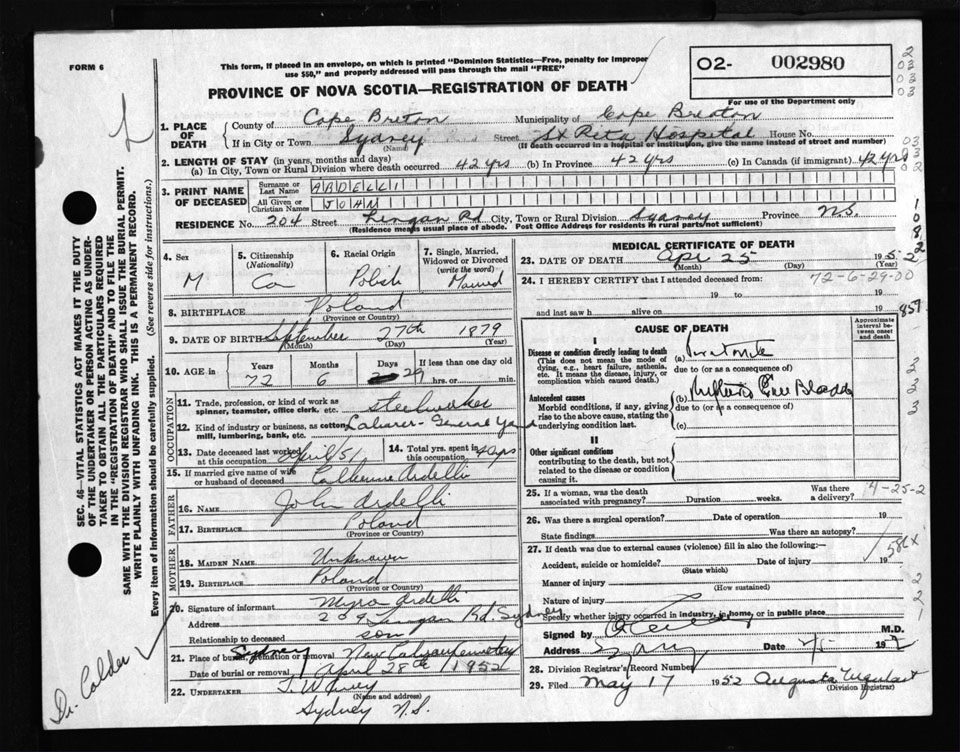 FORM 6
This form, if placed in an envelope, on which is printed "Dominion Statistics—Free, penalty for improper
use $50," and properly addressed will pass through the mail "FREE"
O2- 002980
For use of the Department only
PROVINCE OF NOVA SCOTIA—REGISTRATION OF DEATH
1. PLACE OF DEATH
County of Cape Breton Municipality of Cape Breton
If in City or Town Sydney Street St Rita Hospital House No.
(Name) (If death occurred in a hospital or institution, give the name instead of street and number)
2. LENGTH OF STAY (in years, months and days)
(a) In City, Town or Rural Division where death occurred 42 yrs (b) In Province 42 yrs (c) In Canada (if immigrant) 42 yrs
3. PRINT NAME OF DECEASED
Surname or Last Name ARDELLI
All Given or Christian Names JOHN
RESIDENCE No. 204 Street Lingan Rd City, Town or Rural Division Sydney Province N.S.
(Residence means usual place of abode. Post Office Address for residents in rural parts not sufficient)
4. Sex M
5. Citizenship (Nationality) Can
6. Racial Origin Polish
7. Single, Married, Widowed or Divorced (write the word) Married
8. BIRTHPLACE Poland
(Province or Country)
9. DATE OF BIRTH September 27th 1879
(Month) (Day) (Year)
10. AGE in Years 72 Months 6 Days 29 If less than one day old hrs. or min.
OCCUPATION
11. Trade, profession, or kind of work as spinner, teamster, office clerk, etc. steelworker
12. Kind of industry or business, as cotton mill, lumbering, bank, etc. Laborer - General Yard
13. Date deceased last worked at this occupation April/51
14. Total yrs. spent in this occupation 40 yrs
15. If married give name of wife or husband of deceased Catherine Ardelli
FATHER
16. NAME John Ardelli
17. BIRTHPLACE Poland
(Province or Country)
MOTHER
18. MAIDEN NAME Unknown
19. BIRTHPLACE Poland
(Province or Country)
20. Signature of informant Ardelli
Address Lingan Rd. Sydney
Relationship to deceased son
21. Place of burial, cremation or removal Sydney New Calvary Cemetery
Date of burial or removal April 28th / 1952
22. UNDERTAKER
(Name and address)
Sydney N.S.
MEDICAL CERTIFICATE OF DEATH
23. DATE OF DEATH Apr 25 1952
(Month) (Day) (Year)
24. I HEREBY CERTIFY that I attended deceased from: 72-6-29-00
19 to 19
and last saw h alive on 19
CAUSE OF DEATH
Approximate interval between onset and death
I
Disease or condition directly leading to death
(This does not mean the mode of dying, e.g., heart failure, asthenia, etc. It means the disease, injury, or complication which caused death.)
(a)
due to (or as a consequence of)
Antecedent causes
Morbid conditions, if any, giving rise to the above cause, stating the underlying condition last.
(b) Gall Bladder
due to (or as a consequence of)
(c)
II
Other significant conditions
contributing to the death, but not related to the disease or condition causing it.
25. If a woman, was the death associated with pregnancy? Duration weeks. Was there a delivery?
4-25-2
26. Was there a surgical operation? Date of operation 19
State findings Was there an autopsy?
27. If death was due to external causes (violence) fill in also the following:—
Accident, suicide or homicide? Date of injury 19
(State which)
Manner of injury
(How sustained)
Nature of injury
Specify whether injury occurred in industry, in home, or in public place
Signed by M.D.
Address Sydney Date 19
28. Division Registrar's Record Number
29. Filed May 17 1952 Augusta Urquhart
(Division Registrar)
SEC. 46—VITAL STATISTICS ACT MAKES IT THE DUTY
OF THE UNDERTAKER OR PERSON ACTING AS UNDER-
TAKER TO OBTAIN ALL THE PARTICULARS REQUIRED
IN THE "REGISTRATION OF DEATH" AND TO FILE THE
SAME WITH THE DIVISION REGISTRAR WHO SHALL ISSUE THE BURIAL PERMIT.
WRITE PLAINLY WITH UNFADING INK. THIS IS A PERMANENT RECORD.
Every item of information should be carefully supplied. (See reverse side for instructions.)
Dr. Calder